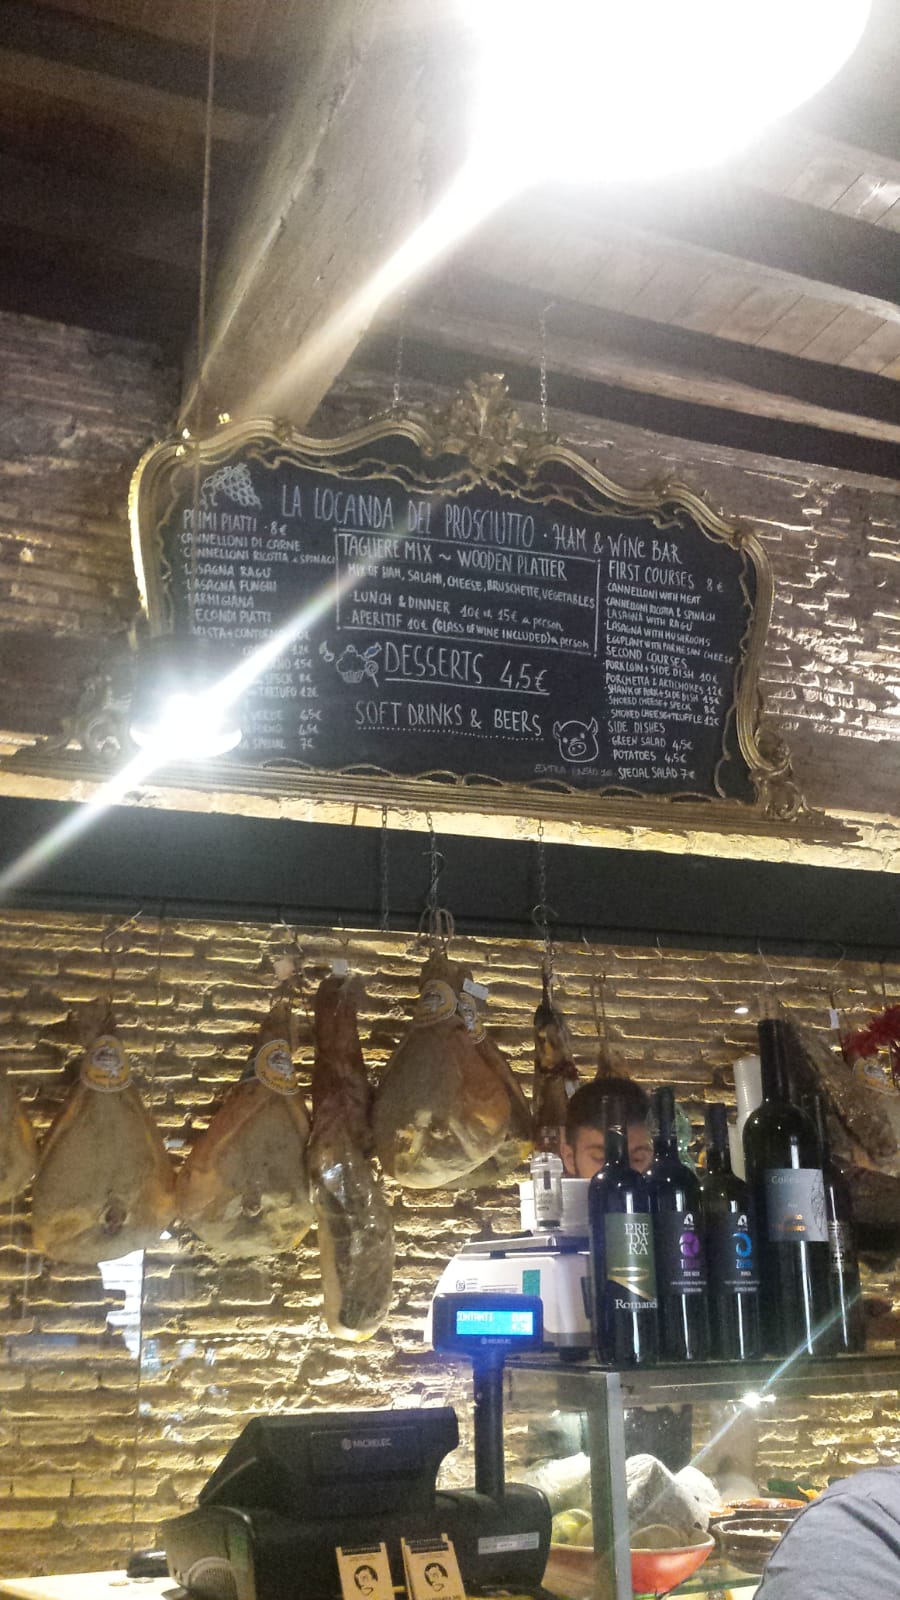 LA LOCANDA DEL PROSCIUTTO · HAM & WINE BAR
PRIMI PIATTI · 8 €
CANNELLONI DI CARNE
CANNELLONI RICOTTA e SPINACI
LASAGNA RAGU
LASAGNA FUNGHI
PARMIGIANA
SECONDI PIATTI
CONTORNO 10€
12€
15€
SPECK 8€
TARTUFO 12€
VERDE 4,5€
4,5€
SPECIAL 7€
TAGLIERE MIX ~ WOODEN PLATTER
MIX OF HAM, SALAMI, CHEESE, BRUSCHETTE, VEGETABLES
· LUNCH & DINNER 10€ or 15€ a person
· APERITIF 10€ (GLASS OF WINE INCLUDED) a person
DESSERTS 4,5€
SOFT DRINKS & BEERS
FIRST COURSES 8€
CANNELLONI WITH MEAT
·CANNELLONI RICOTTA & SPINACH
LASAGNA WITH RAGU
·LASAGNA WITH MUSHROOMS
EGGPLANT WITH PARMESAN CHEESE
SECOND COURSES
·PORK LOIN + SIDE DISH 10€
PORCHETTA & ARTICHOKES 12€
·SHANK OF PORK + SIDE DISH 15€
·SMOKED CHEESE + SPECK 8€
SMOKED CHEESE + TRUFFLE 12€
SIDE DISHES
·GREEN SALAD 4,5€
·POTATOES 4,5€
· SPECIAL SALAD 7€
EXTRA
PRE
DA
RA
Romano
CONTANTI EURO
4.50
MICHELEC
MICHELEC